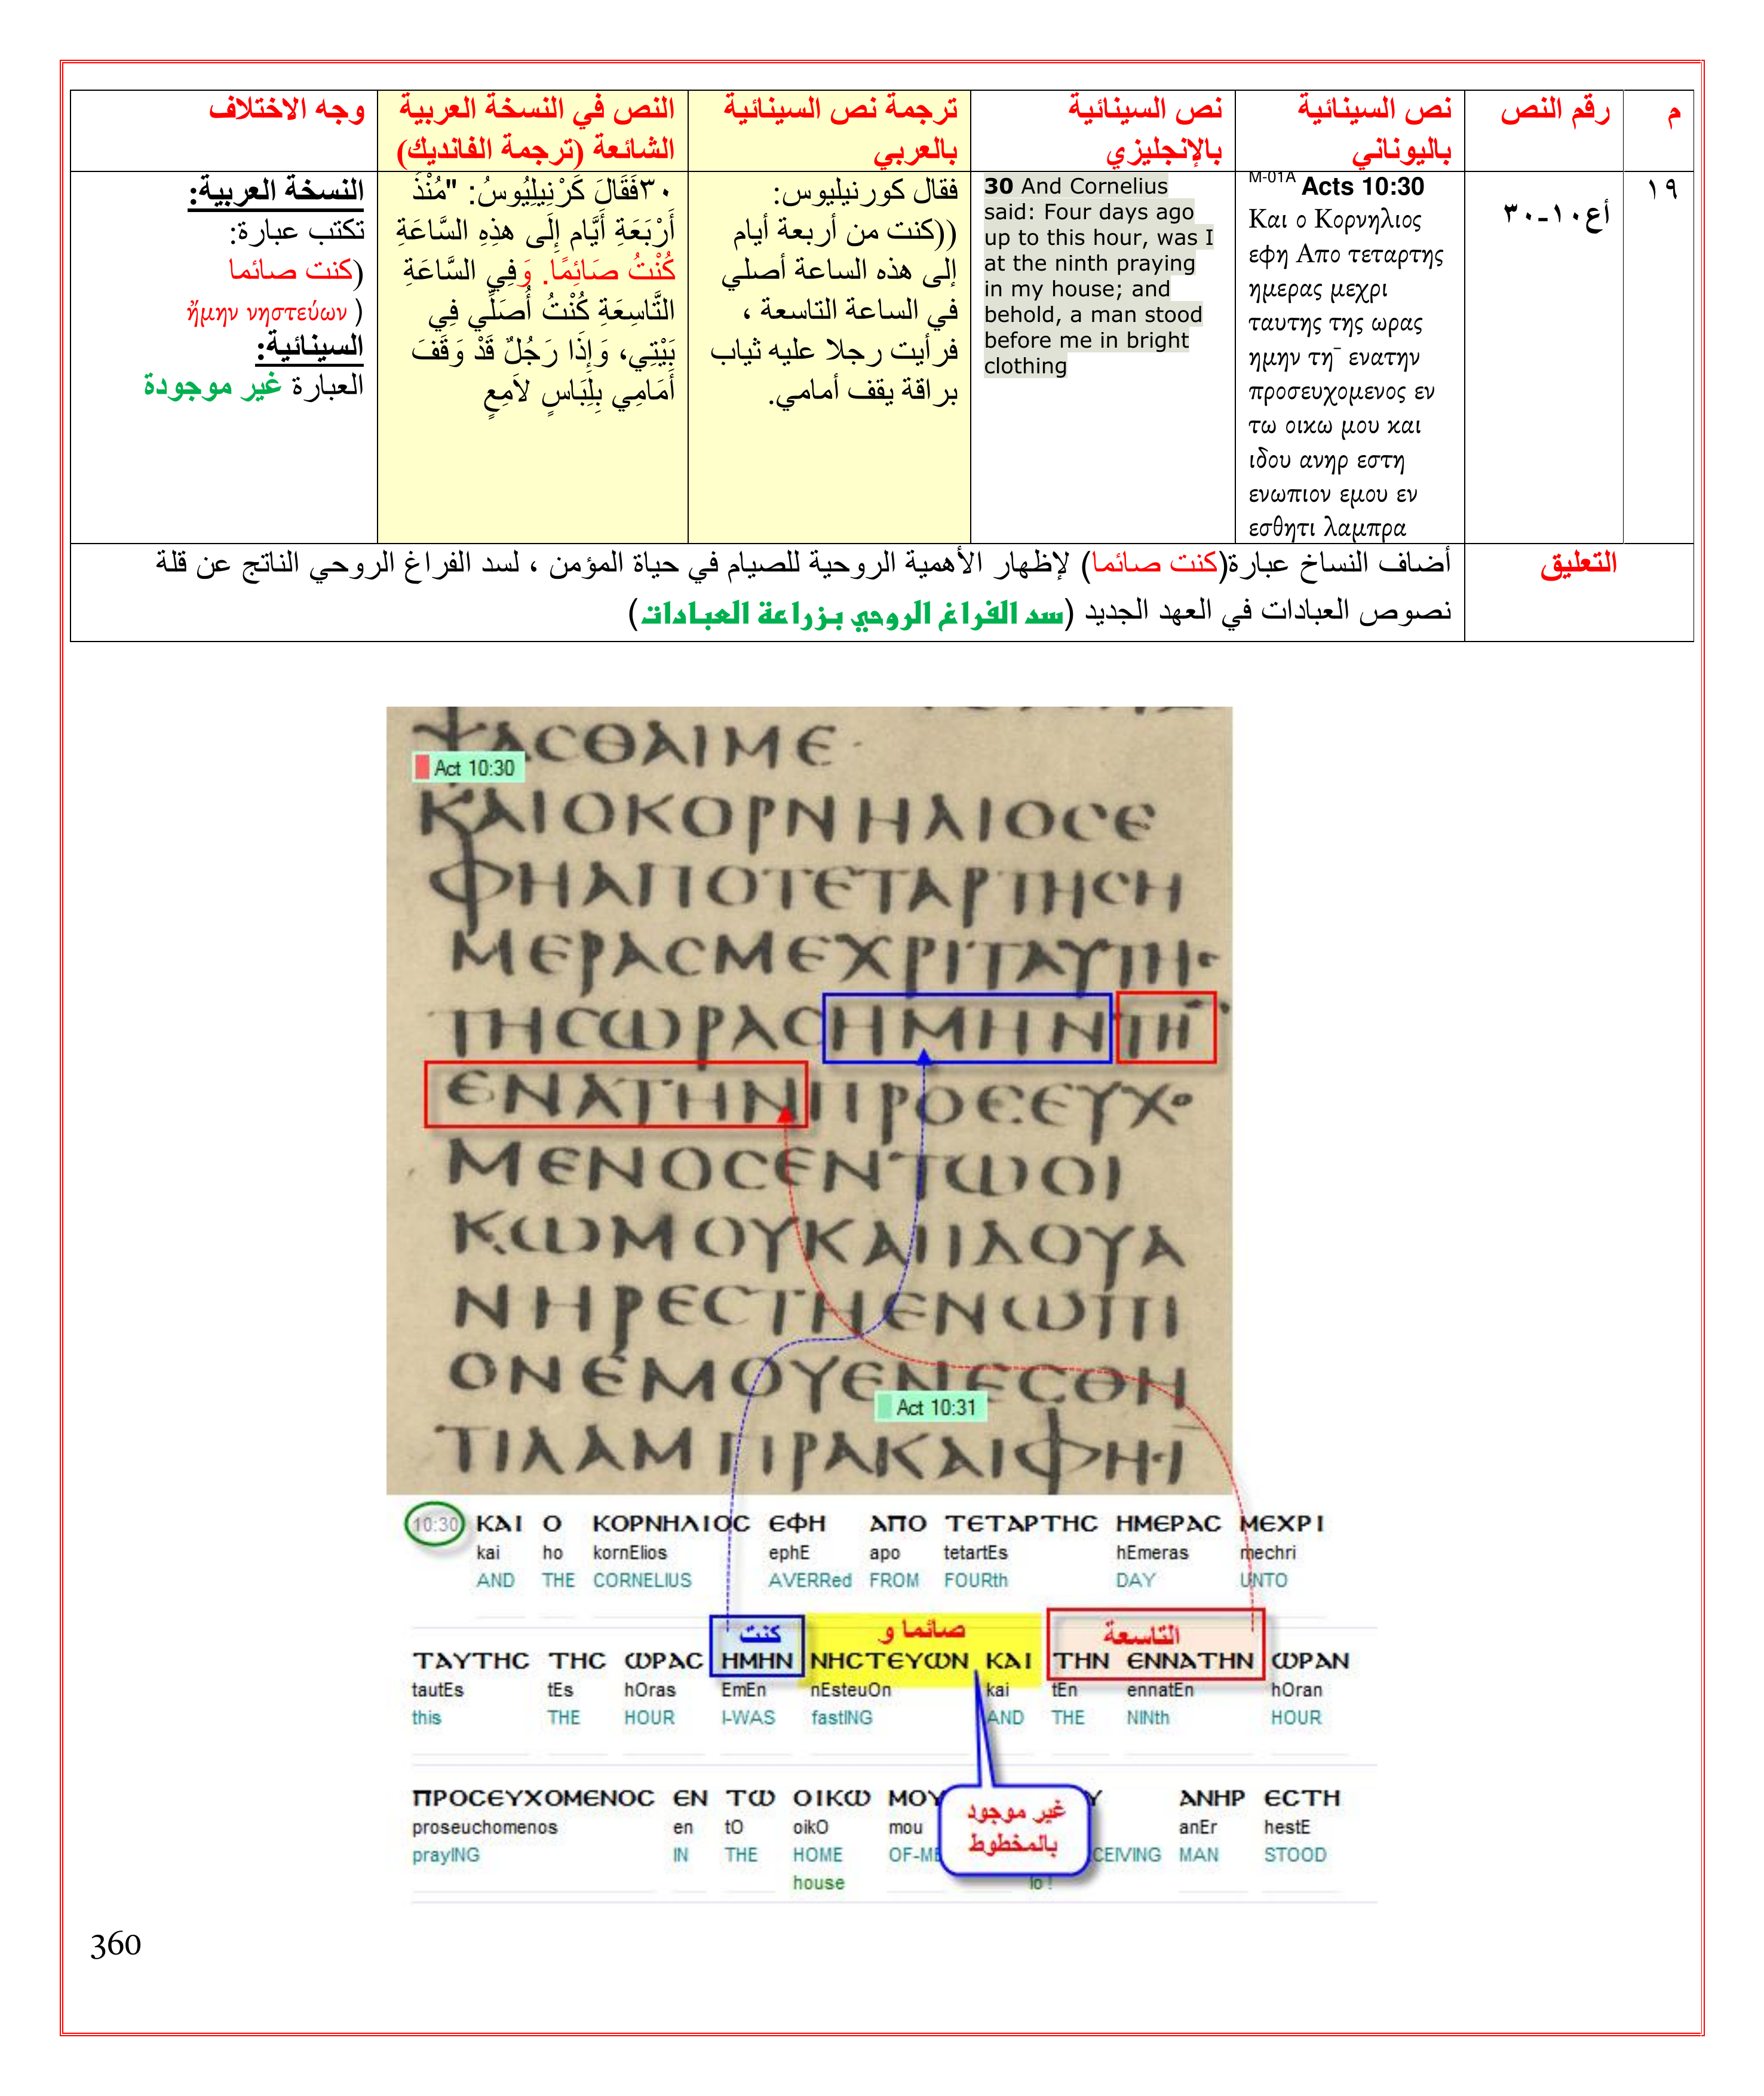 م
رقم النص
نص السينائية
باليوناني
نص السينائية
بالإنجليزي
ترجمة نص السينائية
بالعربي
النص في النسخة العربية
الشائعة (ترجمة الفانديك)
وجه الاختلاف
١٩
أع١٠-٣٠
M-01A Acts 10:30
Και ο Κορνηλιος
εφη Απο τεταρτης
ημερας μεχρι
ταυτης της ωρας
ημην τη¯ ενατην
προσευχομενος εν
τω οικω μου και
ιδου ανηρ εστη
ενωπιον εμου εν
εσθητι λαμπρα
30 And Cornelius
said: Four days ago
up to this hour, was I
at the ninth praying
in my house; and
behold, a man stood
before me in bright
clothing
فقال كورنيليوس:
((كنت من أربعة أيام
إلى هذه الساعة أصلي
في الساعة التاسعة ،
فرأيت رجلا عليه ثياب
براقة يقف أمامي.
٣٠فَقَالَ كَرْنِيلِيُوسُ: "مُنْذُ
أَرْبَعَةِ أَيَّام إِلَى هذِهِ السَّاعَةِ
كُنْتُ صَائِمًا. وَفِي السَّاعَةِ
التَّاسِعَةِ كُنْتُ أُصَلِّي فِي
بَيْتِي، وَإِذَا رَجُلٌ قَدْ وَقَفَ
أَمَامِي بِلِبَاسٍ لاَمِعٍ
النسخة العربية:
تكتب عبارة:
(كنت صائما
ἤμην νηστεύων )
السينائية:
العبارة غير موجودة
التعليق
أضاف النساخ عبارة(كنت صائما) لإظهار الأهمية الروحية للصيام في حياة المؤمن ، لسد الفراغ الروحي الناتج عن قلة
نصوص العبادات في العهد الجديد (سد الفراغ الروحي بزراعة العبادات)
ΨΑCΘΑΙΜΕ·
Act 10:30
ΚΑΙΟΚΟΡΝΗΛΙΟCΕ
ΦΗΑΠΟΤΕΤΑΡΤΗCΗ
ΜΕΡΑCΜΕΧΡΙΤΑΥΤΗC
ΤΗCΩΡΑCΗΜΗΝΤΗ¯
ΕΝΑΤΗΝΠΡΟCΕΥΧΟ
ΜΕΝΟCΕΝΤΩΟΙ
ΚΩΜΟΥΚΑΙΙΔΟΥΑ
ΝΗΡΕCΤΗΕΝΩΠΙ
ΟΝΕΜΟΥΕΝΕCΘΗ
Act 10:31
ΤΙΛΑΜΠΡΑΚΑΙΦΗCΙ
10:30 ΚΑΙ Ο ΚΟΡΝΗΛΙΟC ΕΦΗ ΑΠΟ ΤΕΤΑΡΤΗC ΗΜΕΡΑC ΜΕΧΡΙ
kai ho kornElios ephE apo tetartEs hEmeras mechri
AND THE CORNELIUS AVERRed FROM FOURth DAY UNTO
كنت صائما و التاسعة
ΤΑΥΤΗC ΤΗC ΩΡΑC ΗΜΗΝ ΝΗCΤΕΥΩΝ ΚΑΙ ΤΗΝ ΕΝΝΑΤΗΝ ΩΡΑΝ
tautEs tEs hOras EmEn nEsteuOn kai tEn ennatEn hOran
this THE HOUR I-WAS fastING AND THE NINth HOUR
ΠΡΟCΕΥΧΟΜΕΝΟC ΕΝ ΤΩ ΟΙΚΩ ΜΟΥ ΑΝΗΡ ΕCΤΗ
proseuchomenos en tO oikO mou anEr hestE
prayING IN THE HOME OF-ME CEIVING MAN STOOD
house lo !
غير موجود
بالمخطوط
360